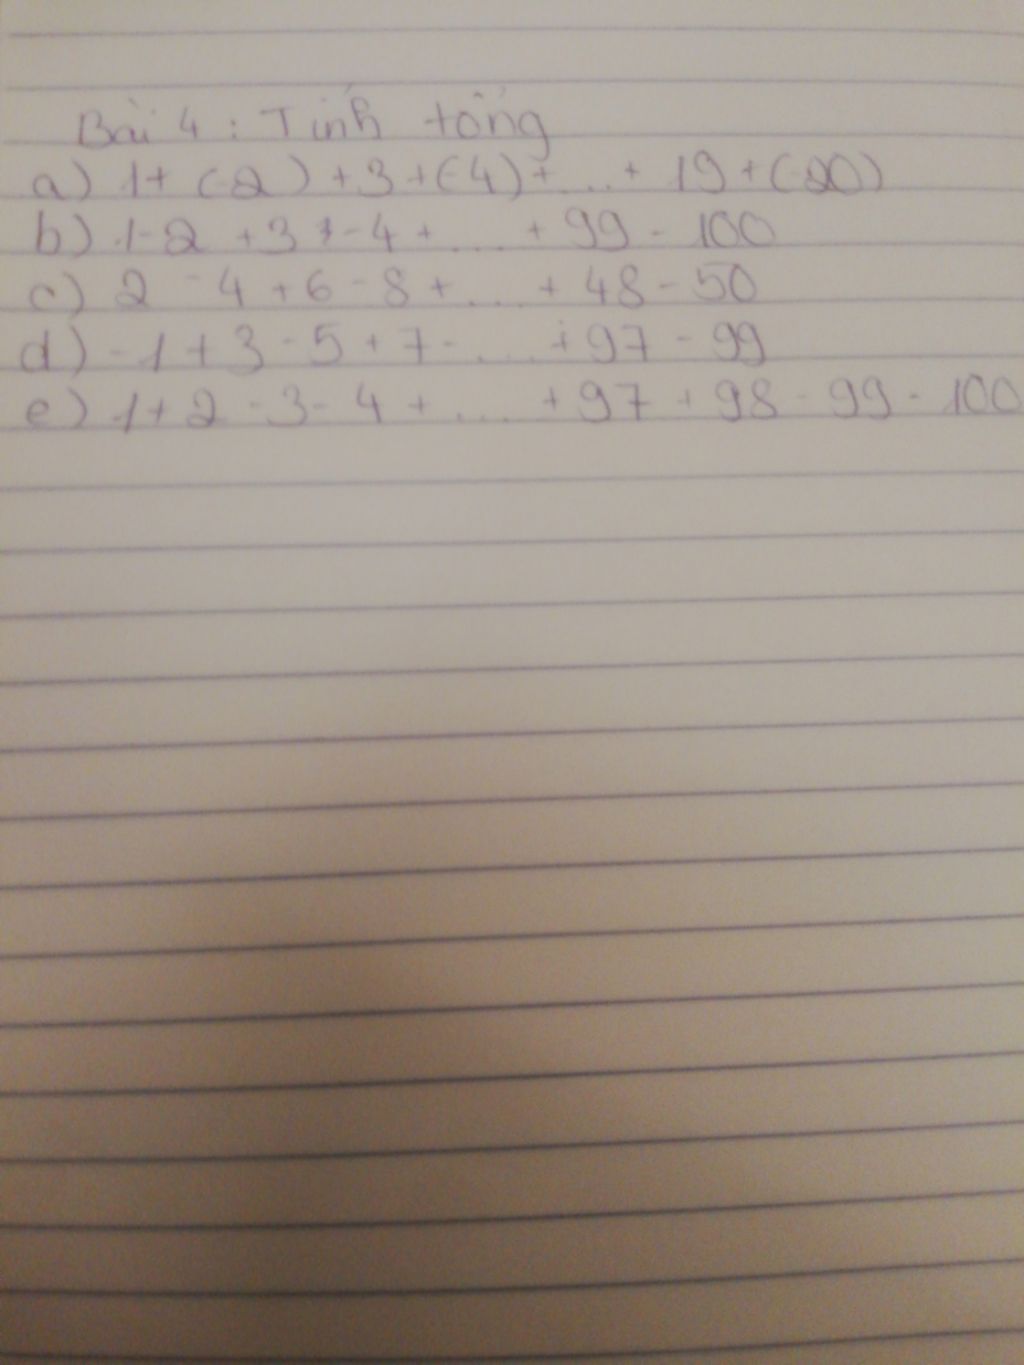 Bài 4 : Tính tổng
a) 1+ (-2) +3 +(-4)+....+ 19 +(-20)
b) 1-2 +3 +-4+ .... + 99 - 100
c) 2 - 4 +6 -8 +.... + 48 - 50
d) -1 +3 -5 +7 - .... +97 - 99
e) 1+2 -3- 4 + .... +97 +98 - 99 - 100